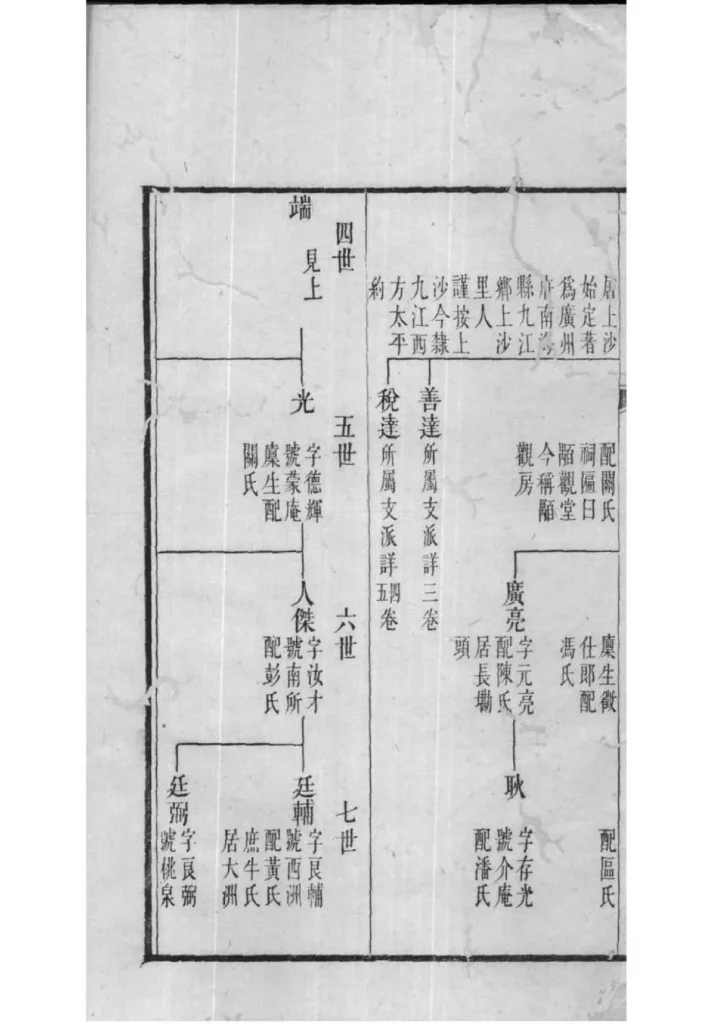 居上沙
始定著
爲廣州
府南海
縣九江
鄉上沙
里人
謹按上
沙今隸
九江西
方太平
約
配關氏
祠區曰
陼觀堂
今稱陼
觀房
善達所屬支派詳三卷
稅達所屬支派詳四五卷
廩生徵
仕郎配
馮氏
廣亮
字元亮
配陳氏
居長墈
頭
配區氏
耿
字存光
號介庵
配潘氏
四世
五世
六世
七世
端
見上
光
字德輝
號蒙庵
廩生配
關氏
人傑
字汝才
號南所
配彭氏
廷輔
字良輔
號西洲
配黃氏
庶牛氏
居大洲
廷弼
字良弼
號桃泉